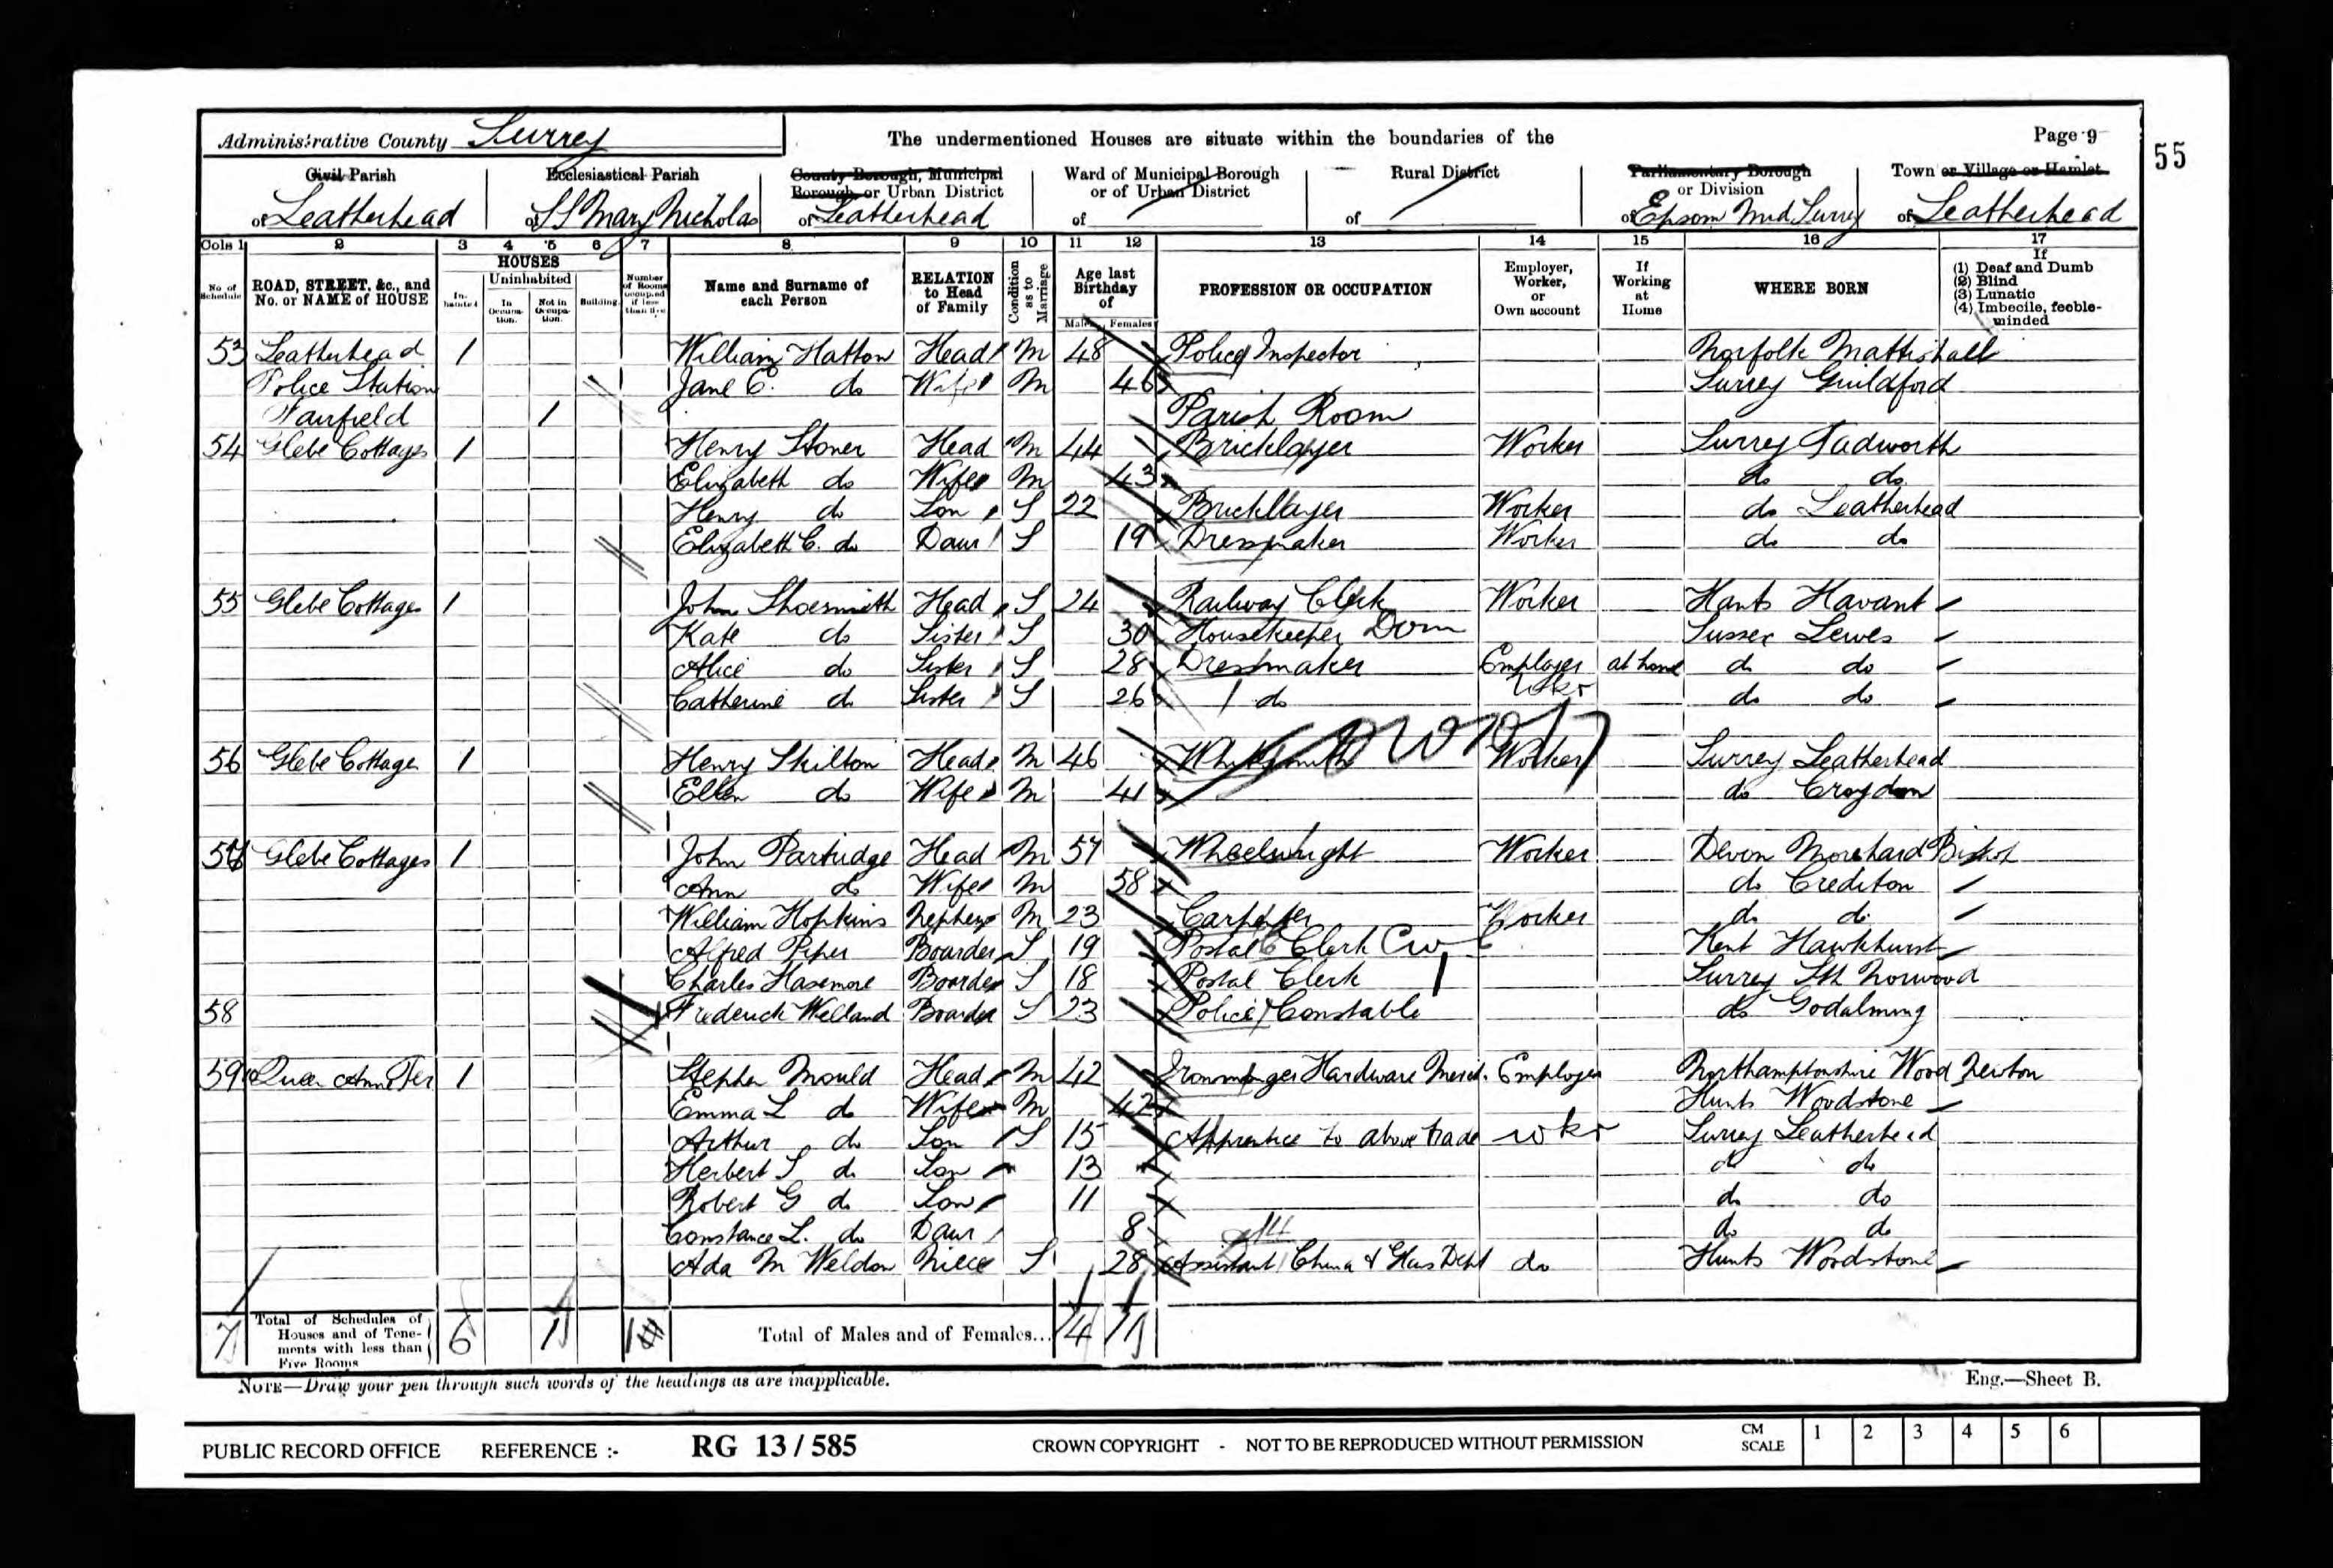 Administrative County Surrey
The undermentioned Houses are situate within the boundaries of the
Page 9
55
Civil Parish of Leatherhead
Ecclesiastical Parish of SS Mary Nicholas
County Borough, Municipal Borough, or Urban District of Leatherhead
Ward of Municipal Borough or of Urban District of
Rural District of
Parliamentary Borough or Division of Epsom Mid Surrey
Town or Village or Hamlet of Leatherhead
Cols 1 2 3 4 5 6 7 8 9 10 11 12 13 14 15 16 17
No. of Schedule
ROAD, STREET, &c., and No. or NAME of HOUSE
HOUSES
Inhabited
Uninhabited
In Occupation.
Not in Occupation.
Building.
Number of Rooms occupied if less than five
Name and Surname of each Person
RELATION to Head of Family
Condition as to Marriage
Age last Birthday of
Males Females
PROFESSION OR OCCUPATION
Employer, Worker, or Own account
If Working at Home
WHERE BORN
If (1) Deaf and Dumb (2) Blind (3) Lunatic (4) Imbecile, feeble-minded
53 Leatherhead 1 William Hatton Head M 48 Police Inspector Norfolk Mattishall
Police Station Jane E. do Wife M 46 Surrey Guildford
Fairfield 1 Parish Room
54 Glebe Cottages 1 Henry Stoner Head M 44 Bricklayer Worker Surrey Tadworth
Elizabeth do Wife M 43 do do
Henry do Son S 22 Bricklayer Worker do Leatherhead
Elizabeth C. do Daur S 19 Dressmaker Worker do do
55 Glebe Cottages 1 John Shoesmith Head S 24 Railway Clerk Worker Hants Havant
Kate do Sister S 30 Housekeeper Dom Sussex Lewes
Alice do Sister S 28 Dressmaker Employer at home do do
Catherine do Sister S 26 do Wkr do do
56 Glebe Cottage 1 Henry Skilton Head M 46 Whitesmith Worker Surrey Leatherhead
Ellen do Wife M 41 do Croydon
57 Glebe Cottages 1 John Partridge Head M 57 Wheelwright Worker Devon Morchard Bishop
Ann do Wife M 58 do Crediton
William Hopkins Nephew M 23 Carpenter Worker do do
Alfred Piper Boarder S 19 Postal Clerk Kent Hawkhurst
Charles Hasemore Boarder S 18 Postal Clerk Surrey Sth Norwood
58 Frederick Welland Boarder S 23 Police Constable do Godalming
59 Queen Anne Ter 1 Stephen Mould Head M 42 Ironmonger Hardware Merch. Employer Northamptonshire Wood Newton
Emma L do Wife M 42 Hunts Woodstone
Arthur do Son S 15 Apprentice to above trade wkr Surrey Leatherhead
Herbert S do Son 13 do do
Robert G do Son 11 do do
Constance L. do Daur 8 do do
Ada M Weldon Niece S 28 Assistant China & Glass Dept do Hunts Woodstone
7 Total of Schedules of Houses and of Tenements with less than Five Rooms 6 1 1 Total of Males and of Females... 14 11
NOTE—Draw your pen through such words of the headings as are inapplicable.
Eng.—Sheet B.
PUBLIC RECORD OFFICE REFERENCE :- RG 13/585 CROWN COPYRIGHT - NOT TO BE REPRODUCED WITHOUT PERMISSION CM SCALE 1 2 3 4 5 6